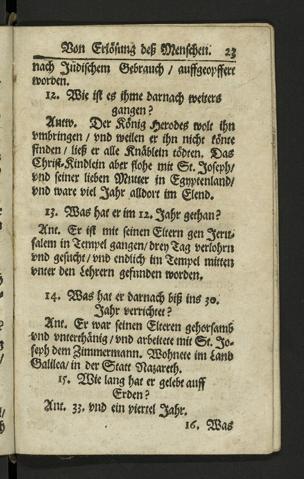 Von Erlösung deß Menschen. 23
nach Jüdischem Gebrauch / auffgeopffert
worden.
12. Wie ist es ihme darnach weiters
gangen?
Antw. Der König Herodes wolt ihn
vmbringen / vnd weilen er ihn nicht könte
finden / ließ er alle Knäblein tödten. Das
Christ-Kindlein aber flohe mit St. Joseph /
vnd seiner lieben Mutter in Egyptenland /
vnd ware viel Jahr alldort im Elend.
13. Was hat er im 12. Jahr gethan?
Ant. Er ist mit seinen Eltern gen Jeru-
salem in Tempel gangen / drey Tag verlohrn
vnd gesucht / vnd endlich im Tempel mitten
vnter den Lehrern gefunden worden.
14. Was hat er darnach biß ins 30.
Jahr verrichtet?
Ant. Er war seinen Elteren gehorsamb
vnd vnterthänig / vnd arbeitete mit St. Jo-
seph dem Zimmermann. Wohnete im Land
Galilea / in der Statt Nazareth.
15. Wie lang hat er gelebt auff
Erden?
Ant. 33. vnd ein viertel Jahr.
16. Was